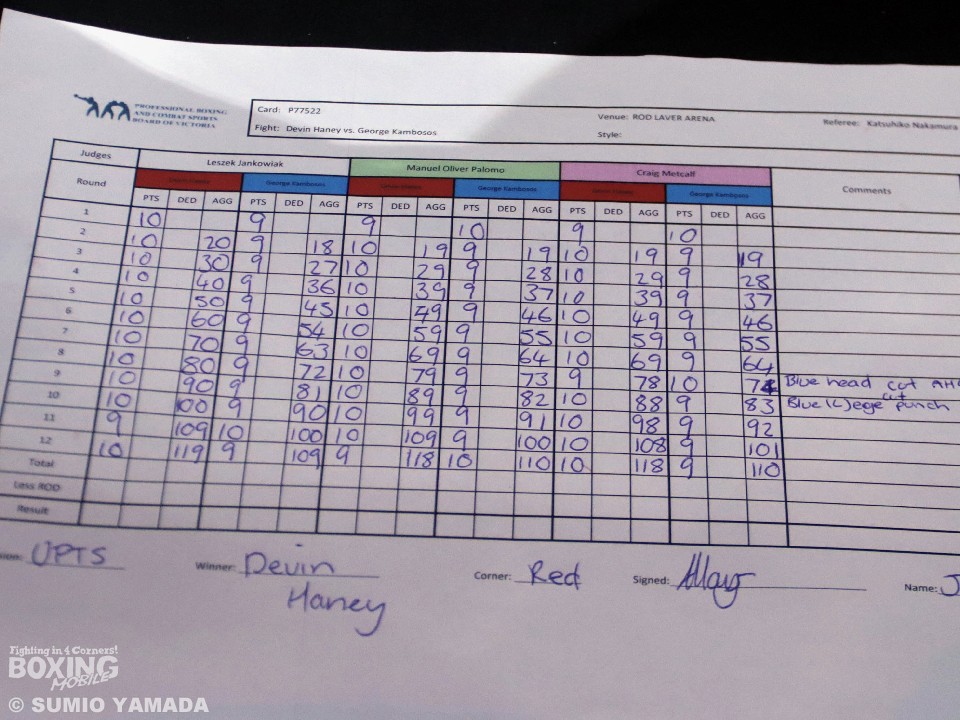 PROFESSIONAL BOXING
AND COMBAT SPORTS
BOARD OF VICTORIA
Card: P77522 Venue: ROD LAVER ARENA Referee: Katsuhiko Nakamura
Fight: Devin Haney vs. George Kambosos Style:
Judges Leszek Jankowiak Manuel Oliver Palomo Craig Metcalf Comments
Round Devin Haney George Kambosos Devin Haney George Kambosos Devin Haney George Kambosos
PTS DED AGG PTS DED AGG PTS DED AGG PTS DED AGG PTS DED AGG PTS DED AGG
1 10 9 9 10 9 10
2 10 20 9 18 10 19 9 19 10 19 9 19
3 10 30 9 27 10 29 9 28 10 29 9 28
4 10 40 9 36 10 39 9 37 10 39 9 37
5 10 50 9 45 10 49 9 46 10 49 9 46
6 10 60 9 54 10 59 9 55 10 59 9 55
7 10 70 9 63 10 69 9 64 10 69 9 64
8 10 80 9 72 10 79 9 73 9 78 10 74 Blue head cut AHC
9 10 90 9 81 10 89 9 82 10 88 9 83 Blue (L) eye cut punch
10 10 100 9 90 10 99 9 91 10 98 9 92
11 9 109 10 100 10 109 9 100 10 108 9 101
12 10 119 9 109 9 118 10 110 10 118 9 110
Total
Less ROD
Result
UPTS Winner: Devin Haney Corner: Red Signed: Name: J
Fighting in 4 Corners!
BOXING
MOBILE
© SUMIO YAMADA